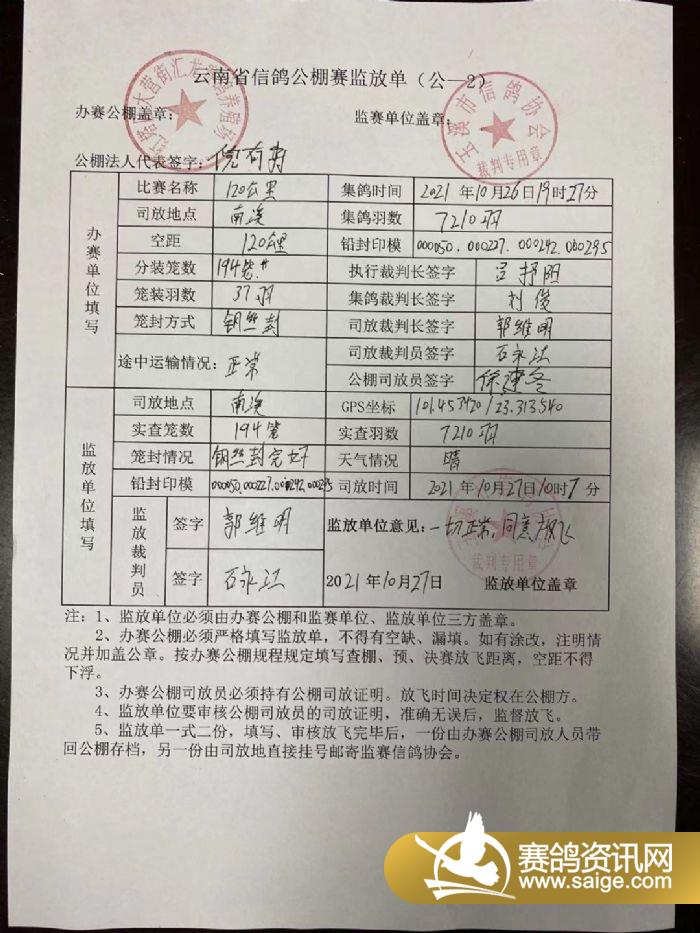 云南省信鸽公棚赛监放单（公—2）
办赛公棚盖章：
监赛单位盖章：
玉溪市信鸽协会
裁判专用章
公棚法人代表签字：倪有寿
办赛单位填写
比赛名称 120公里 集鸽时间 2021年10月26日19时27分
司放地点 南溪 集鸽羽数 7210羽
空距 120公里 铅封印模 000050.000227.000292.000295
分装笼数 194笼 执行裁判长签字
笼装羽数 37羽 集鸽裁判长签字 刘俊
笼封方式 钢丝封 司放裁判长签字 郭维明
途中运输情况：正常 司放裁判员签字 石永江
公棚司放员签字 徐建冬
监放单位填写
司放地点 南溪 GPS坐标 101.457920/23.313540
实查笼数 194笼 实查羽数 7210羽
笼封情况 钢丝封完好 天气情况 晴
铅封印模 000050.000227.000292.000295 司放时间 2021年10月27日10时7分
监放裁判员
签字 郭维明 监放单位意见：一切正常，同意放飞
签字 石永江 2021年10月27日 监放单位盖章
裁判专用章
注：1、监放单位必须由办赛公棚和监赛单位、监放单位三方盖章。
2、办赛公棚必须严格填写监放单，不得有空缺、漏填。如有涂改，注明情
况并加盖公章。按办赛公棚规程规定填写查棚、预、决赛放飞距离，空距不得
下浮。
3、办赛公棚司放员必须持有公棚司放证明。放飞时间决定权在公棚方。
4、监放单位要审核公棚司放员的司放证明，准确无误后，监督放飞。
5、监放单一式二份，填写、审核放飞完毕后，一份由办赛公棚司放人员带
回公棚存档，另一份由司放地直接挂号邮寄监赛信鸽协会。
赛鸽资讯网
www.saige.com